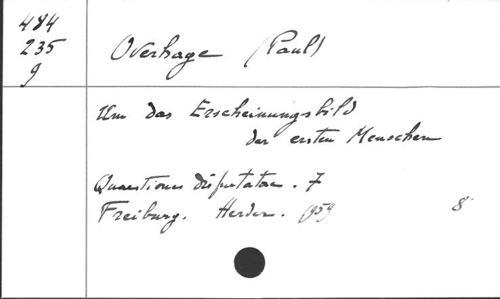 484
235
9
Overhage (Paul)
Um das Erscheinungsbild
der ersten Menschen
Quaestiones disputatae. 7
Freiburg. Herder. 1959 8°